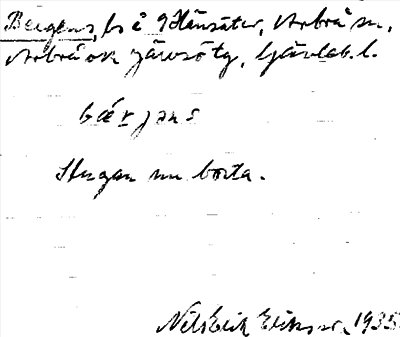 Bergens, bs å Hänsäter, Arbrå sn,
Arbrå ok Järvsö tg, Gävleb. l.
bæ̀rjans
Stugan nu borta.
Nils Erik Eriksson, 1935